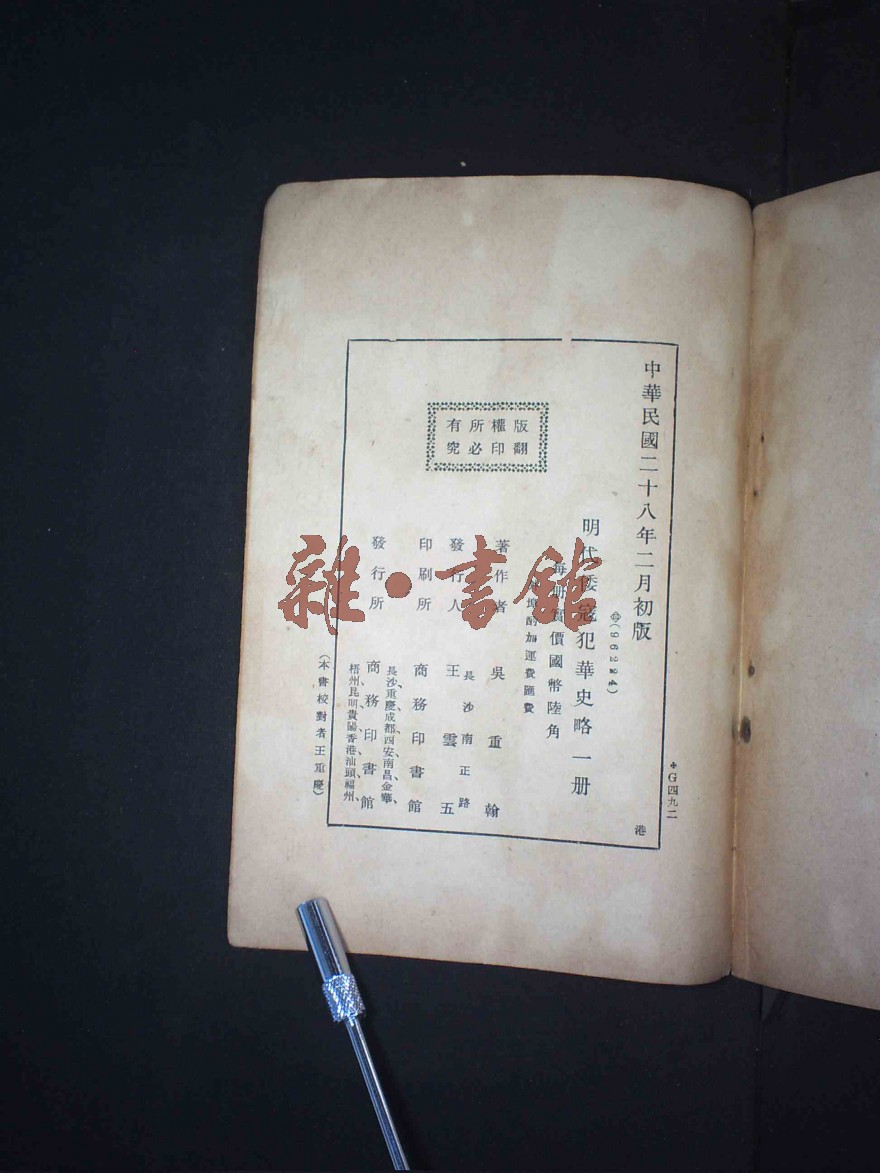 中華民國二十八年二月初版
(96224)
明代倭寇犯華史略一册
每册實價國幣陸角
外埠酌加運費匯費
版權所有
翻印必究
著作者 吳重翰
長沙南正路
發行人 王雲五
印刷所 商務印書館
長沙、重慶、成都、西安、南昌、金華、
發行所 商務印書館
梧州、昆明、貴陽、香港、汕頭、福州、
(本書校對者王重慶)
G四九二
港
雜·書館